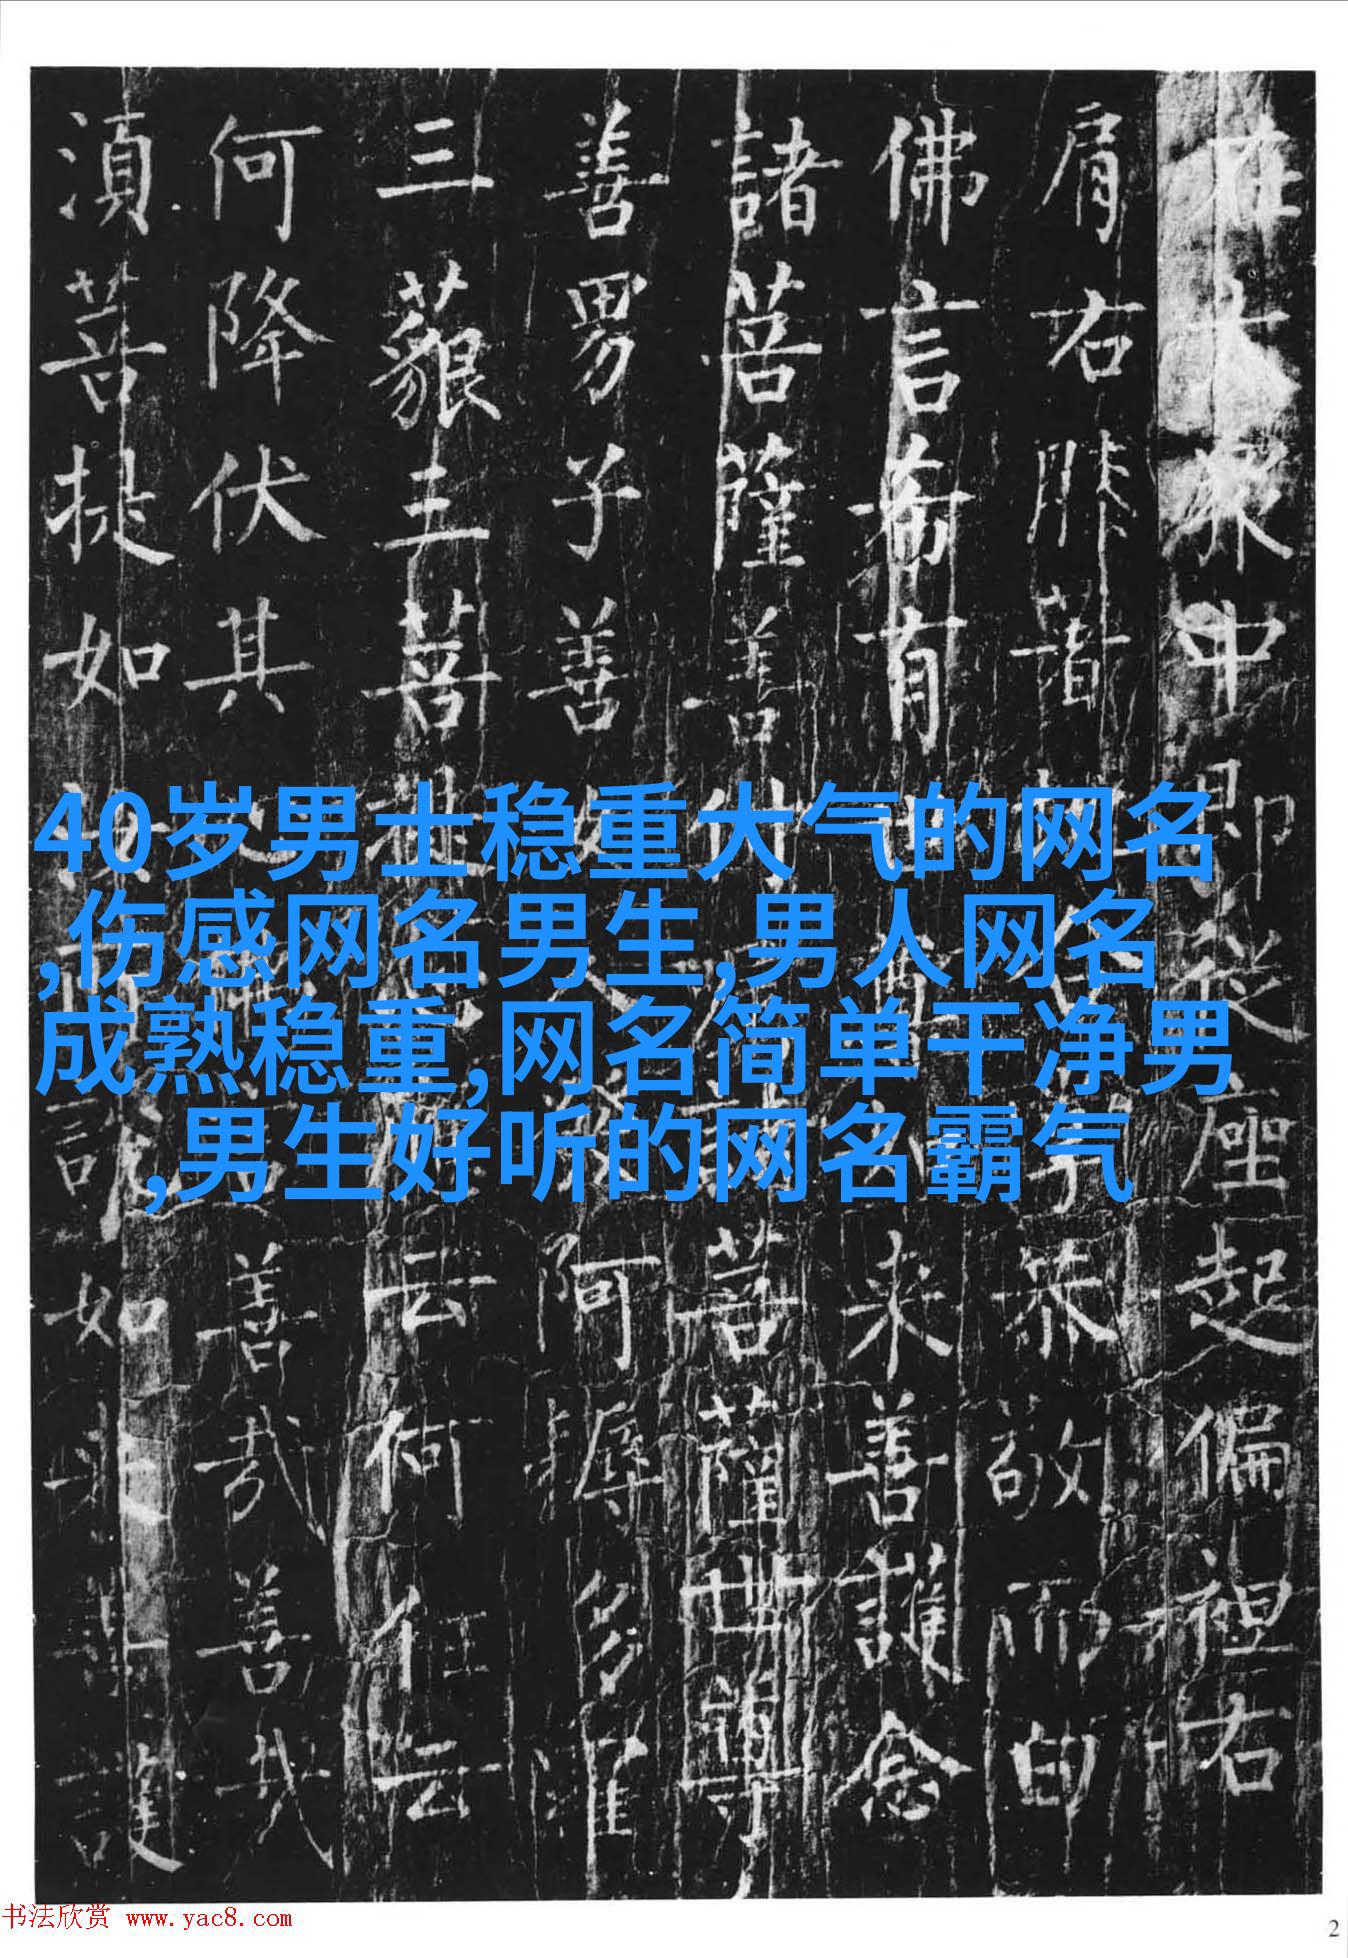 在大眾中即從座起偏袒右
肩右膝著恭敬而白
佛言希有來善護念
諸菩薩善付菩薩世尊
善男子善阿耨多羅
三藐三菩提云何住云
何降伏其善哉善哉
湏菩提如說如來善護
40岁男士稳重大气的网名
,伤感网名男生,男人网名
成熟稳重,网名简单干净男
,男生好听的网名霸气
书法欣赏 www.yac8.com
2